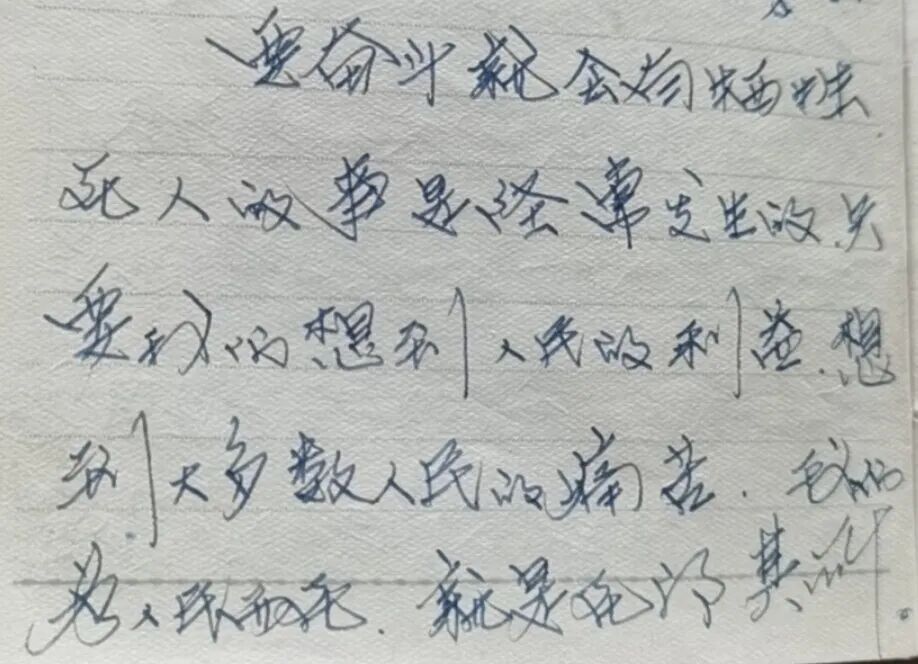 要奋斗就会有牺牲
死人的事是经常发生的.只
要我们想到人民的利益.想
到大多数人民的痛苦.我们
为人民而死.就是死得其所